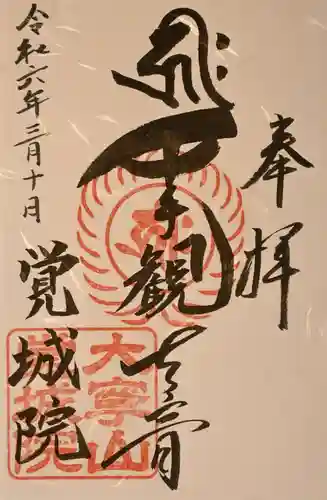 奉拝
千手観音
覚城院
令和六年三月十日
大寧山
覚城院